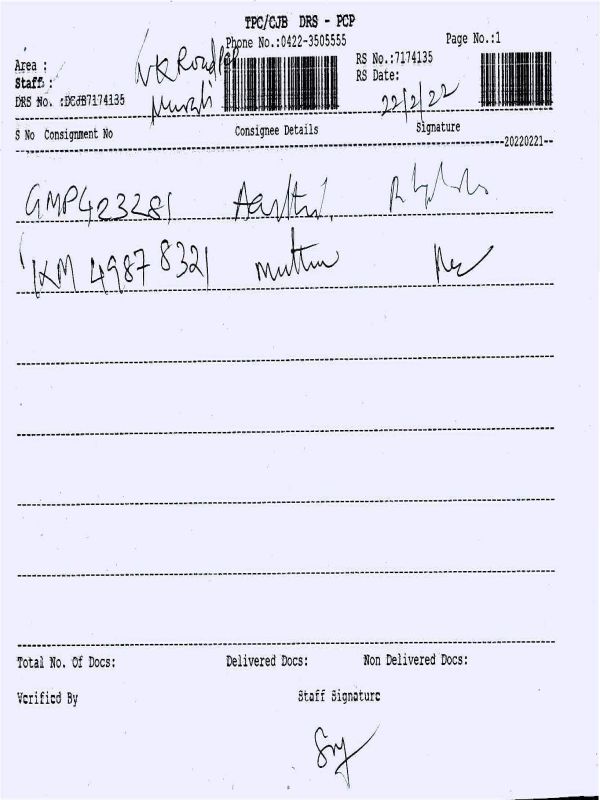 TPC/CJB DRS - PCP
Phone No.:0422-3505555 Page No.:1
Area : RS No.:7174135
Staff : Murali RS Date: 22/2/22
DRS No. :DCJB7174135
S No Consignment No Consignee Details Signature
20220221
GMP423281
KM 49878321 Muthu
Total No. Of Docs: Delivered Docs: Non Delivered Docs:
Verified By Staff Signature